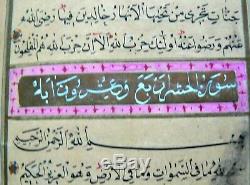 جنات تجرى من تحتها الانهار خالدين فيها رضى الله
ورضوا عنه اولئك حزب الله الا ان حزب الله هم المفلحون
سورة الحشر اربع وعشرون اية
بسم الله الرحمن الرحيم
لله ما فى السموات وما فى الارض وهو العزيز الحكيم